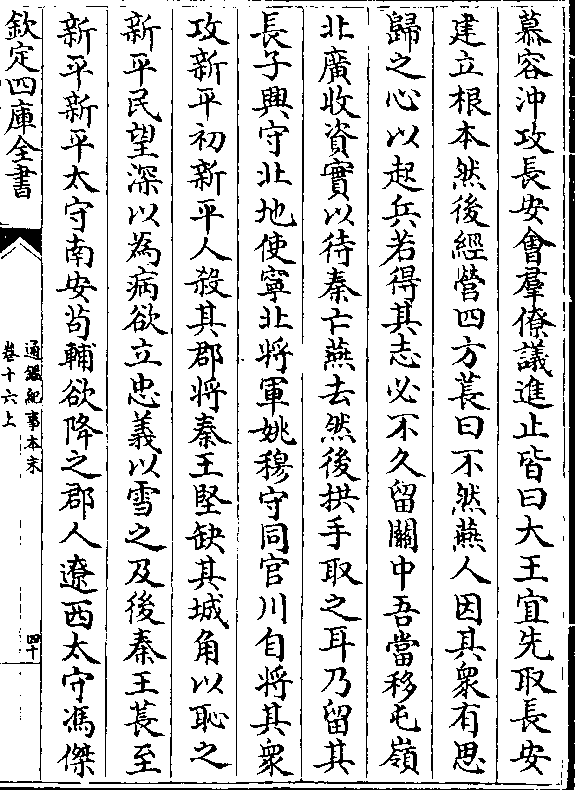 慕容沖攻長安㑹羣僚議進止皆曰大王宜先取長安
建立根本然後經營四方萇曰不然燕人因其衆有思
歸之心以起兵若得其志必不久留闗中吾當移屯嶺
北廣收資實以待秦亡燕去然後拱手取之耳乃留其
長子興守北地使寧北將軍姚穆守同官川自將其衆
攻新平初新平人殺其郡將秦王堅缺其城角以恥之
新平民望深以為病欲立忠義以雪之及後秦王萇至
新平新平太守南安苟輔欲降之郡人遼西太守馮傑
欽定四庫全書
通鑑紀事本末
卷十六上
四十